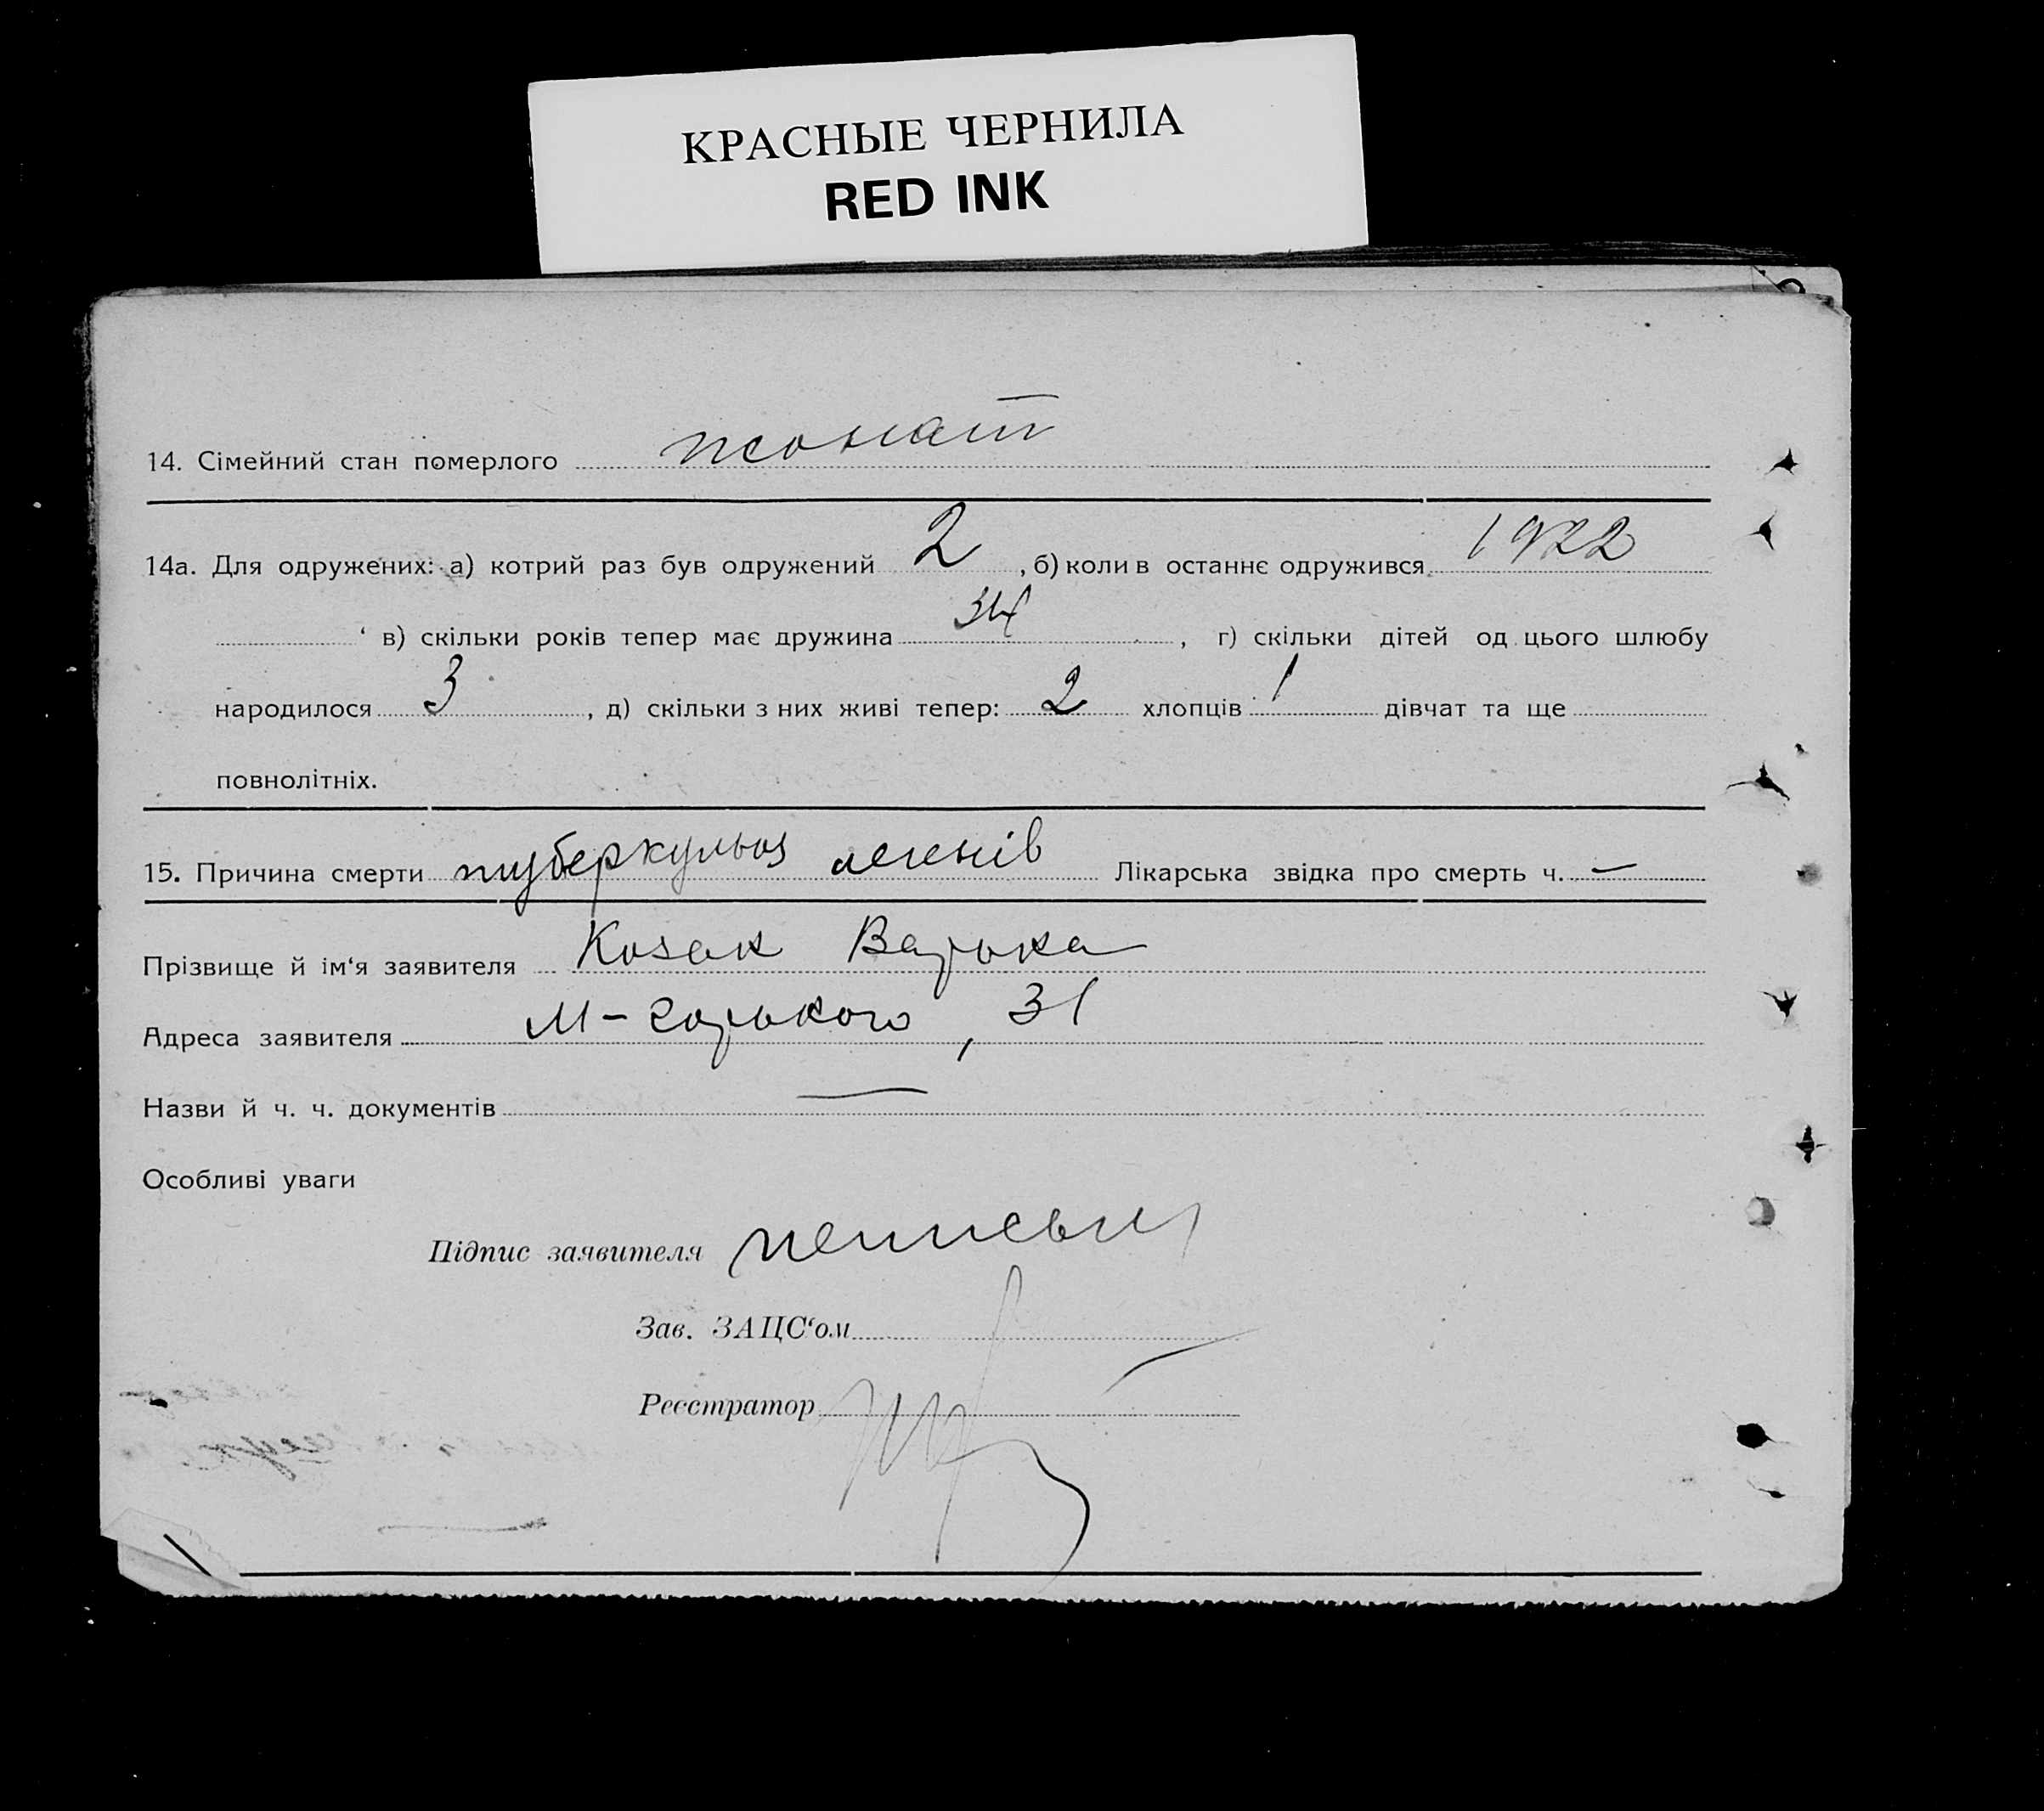 КРАСНЫЕ ЧЕРНИЛА
RED INK
14. Сімейний стан померлого жонат
14а. Для одружених: а) котрий раз був одружений 2, б) коли в останнє одружився 1922
в) скільки років тепер має дружина 34, г) скільки дітей од цього шлюбу
народилося 3, д) скільки з них живі тепер: 2 хлопців 1 дівчат та ще
повнолітніх.
15. Причина смерти туберкульоз легенів Лікарська звідка про смерть ч. —
Прізвище й ім‘я заявителя Козак Варька
Адреса заявителя М-Горького, 31
Назви й ч. ч. документів —
Особливі уваги
Підпис заявителя
Зав. ЗАЦС‘ом
Реєстратор